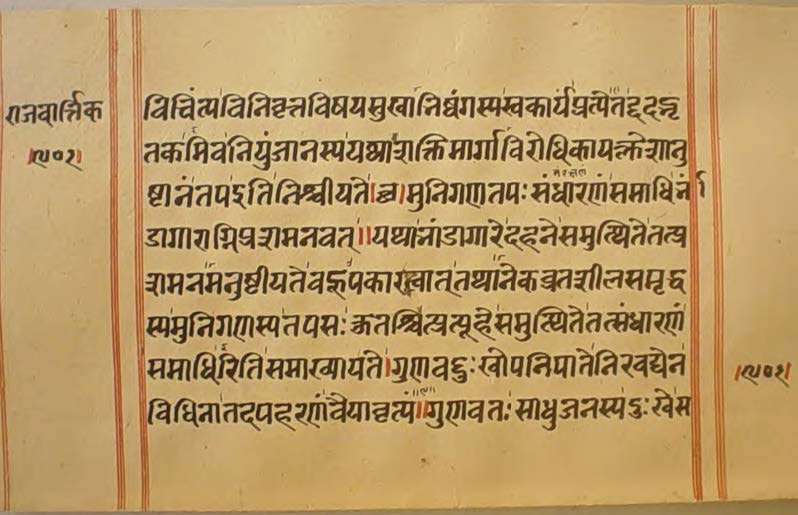 राजवार्त्तिक
।९०२।
विचिंत्य विनिवृत्तविषयसुखानिष्वंगस्य स्वकार्यं प्रत्येतद्भृ
तकमिव नियुंजानस्य यथाशक्ति मार्गाविरोधिकायक्लेशानु
ष्टानं तप इति निश्चीयते। छ। मुनिगणतपः संधारणं समाधि
डागाराग्निप्रशमनवत्॥ यथा भांडागारे दहने समुत्थिते तत्प्र
शमनमनुष्ठीयते बहूपकारत्वात् तथानेकव्रतशीलसमृद्ध
स्य मुनिगणस्य तपसः कुतश्चित्प्रत्यूहे समुत्थिते तत्संधारणं
समाधिरिति समाख्यायते। गुणवद्दुःखोपनिपाते निरवद्येन
विधिना तदपहरणं वैयावृत्यं॥ गुणवतः साधुजनस्य दुःखे स
।९०२।